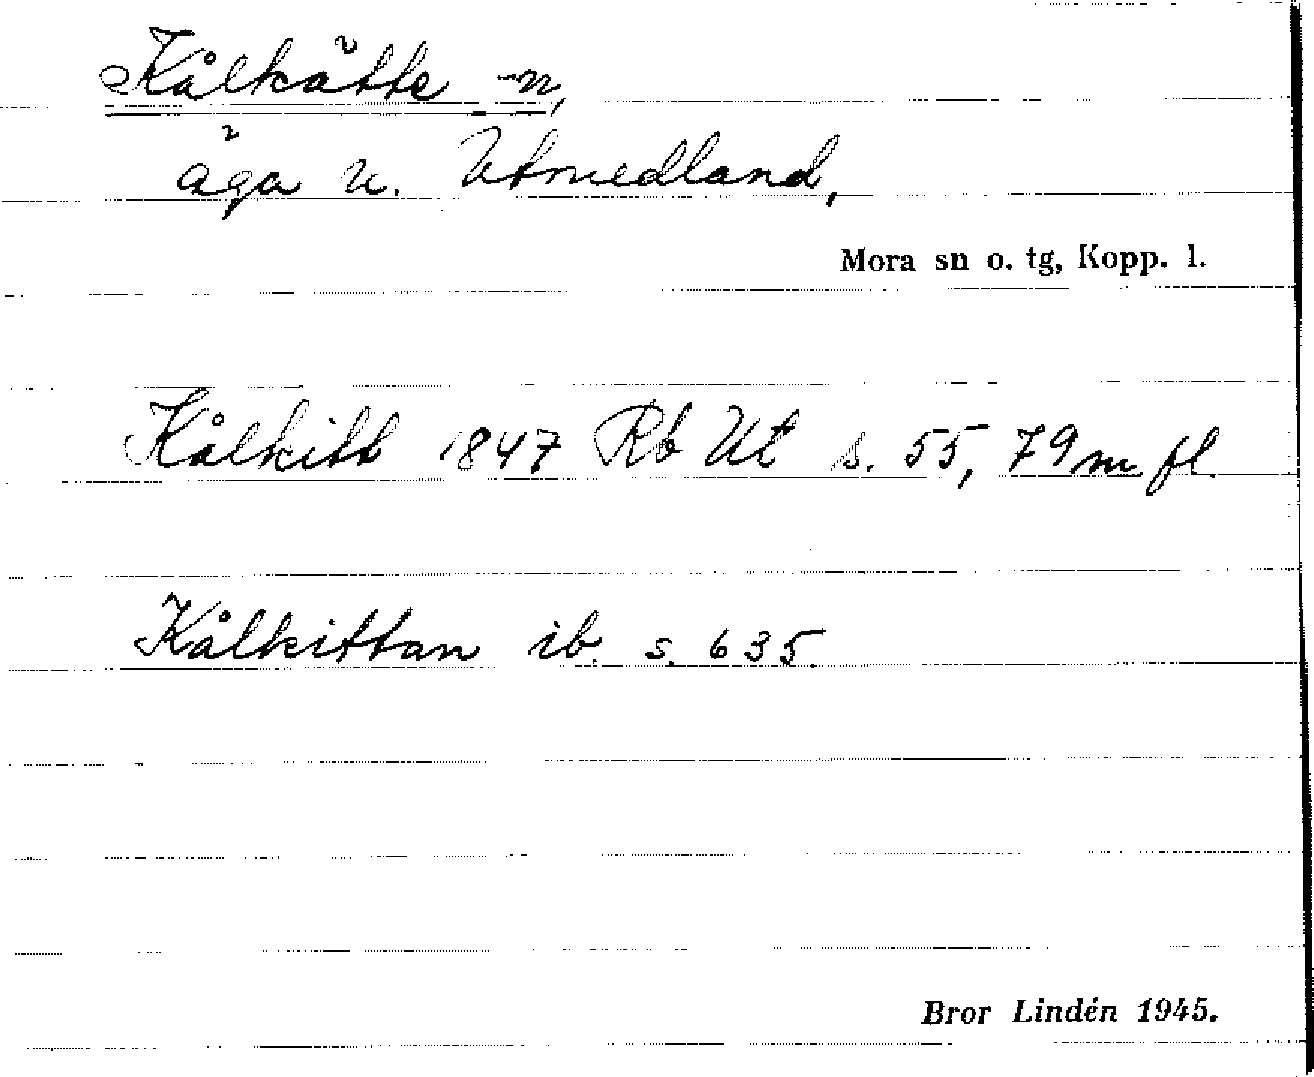 Kålkätte -n,
äga u. Utmedland,
Mora sn o. tg, Kopp. l.
Kålkitt 1847 Rb Ut s. 55, 79 m fl.
Kålkittan ib. s. 635.
Bror Lindén 1945.